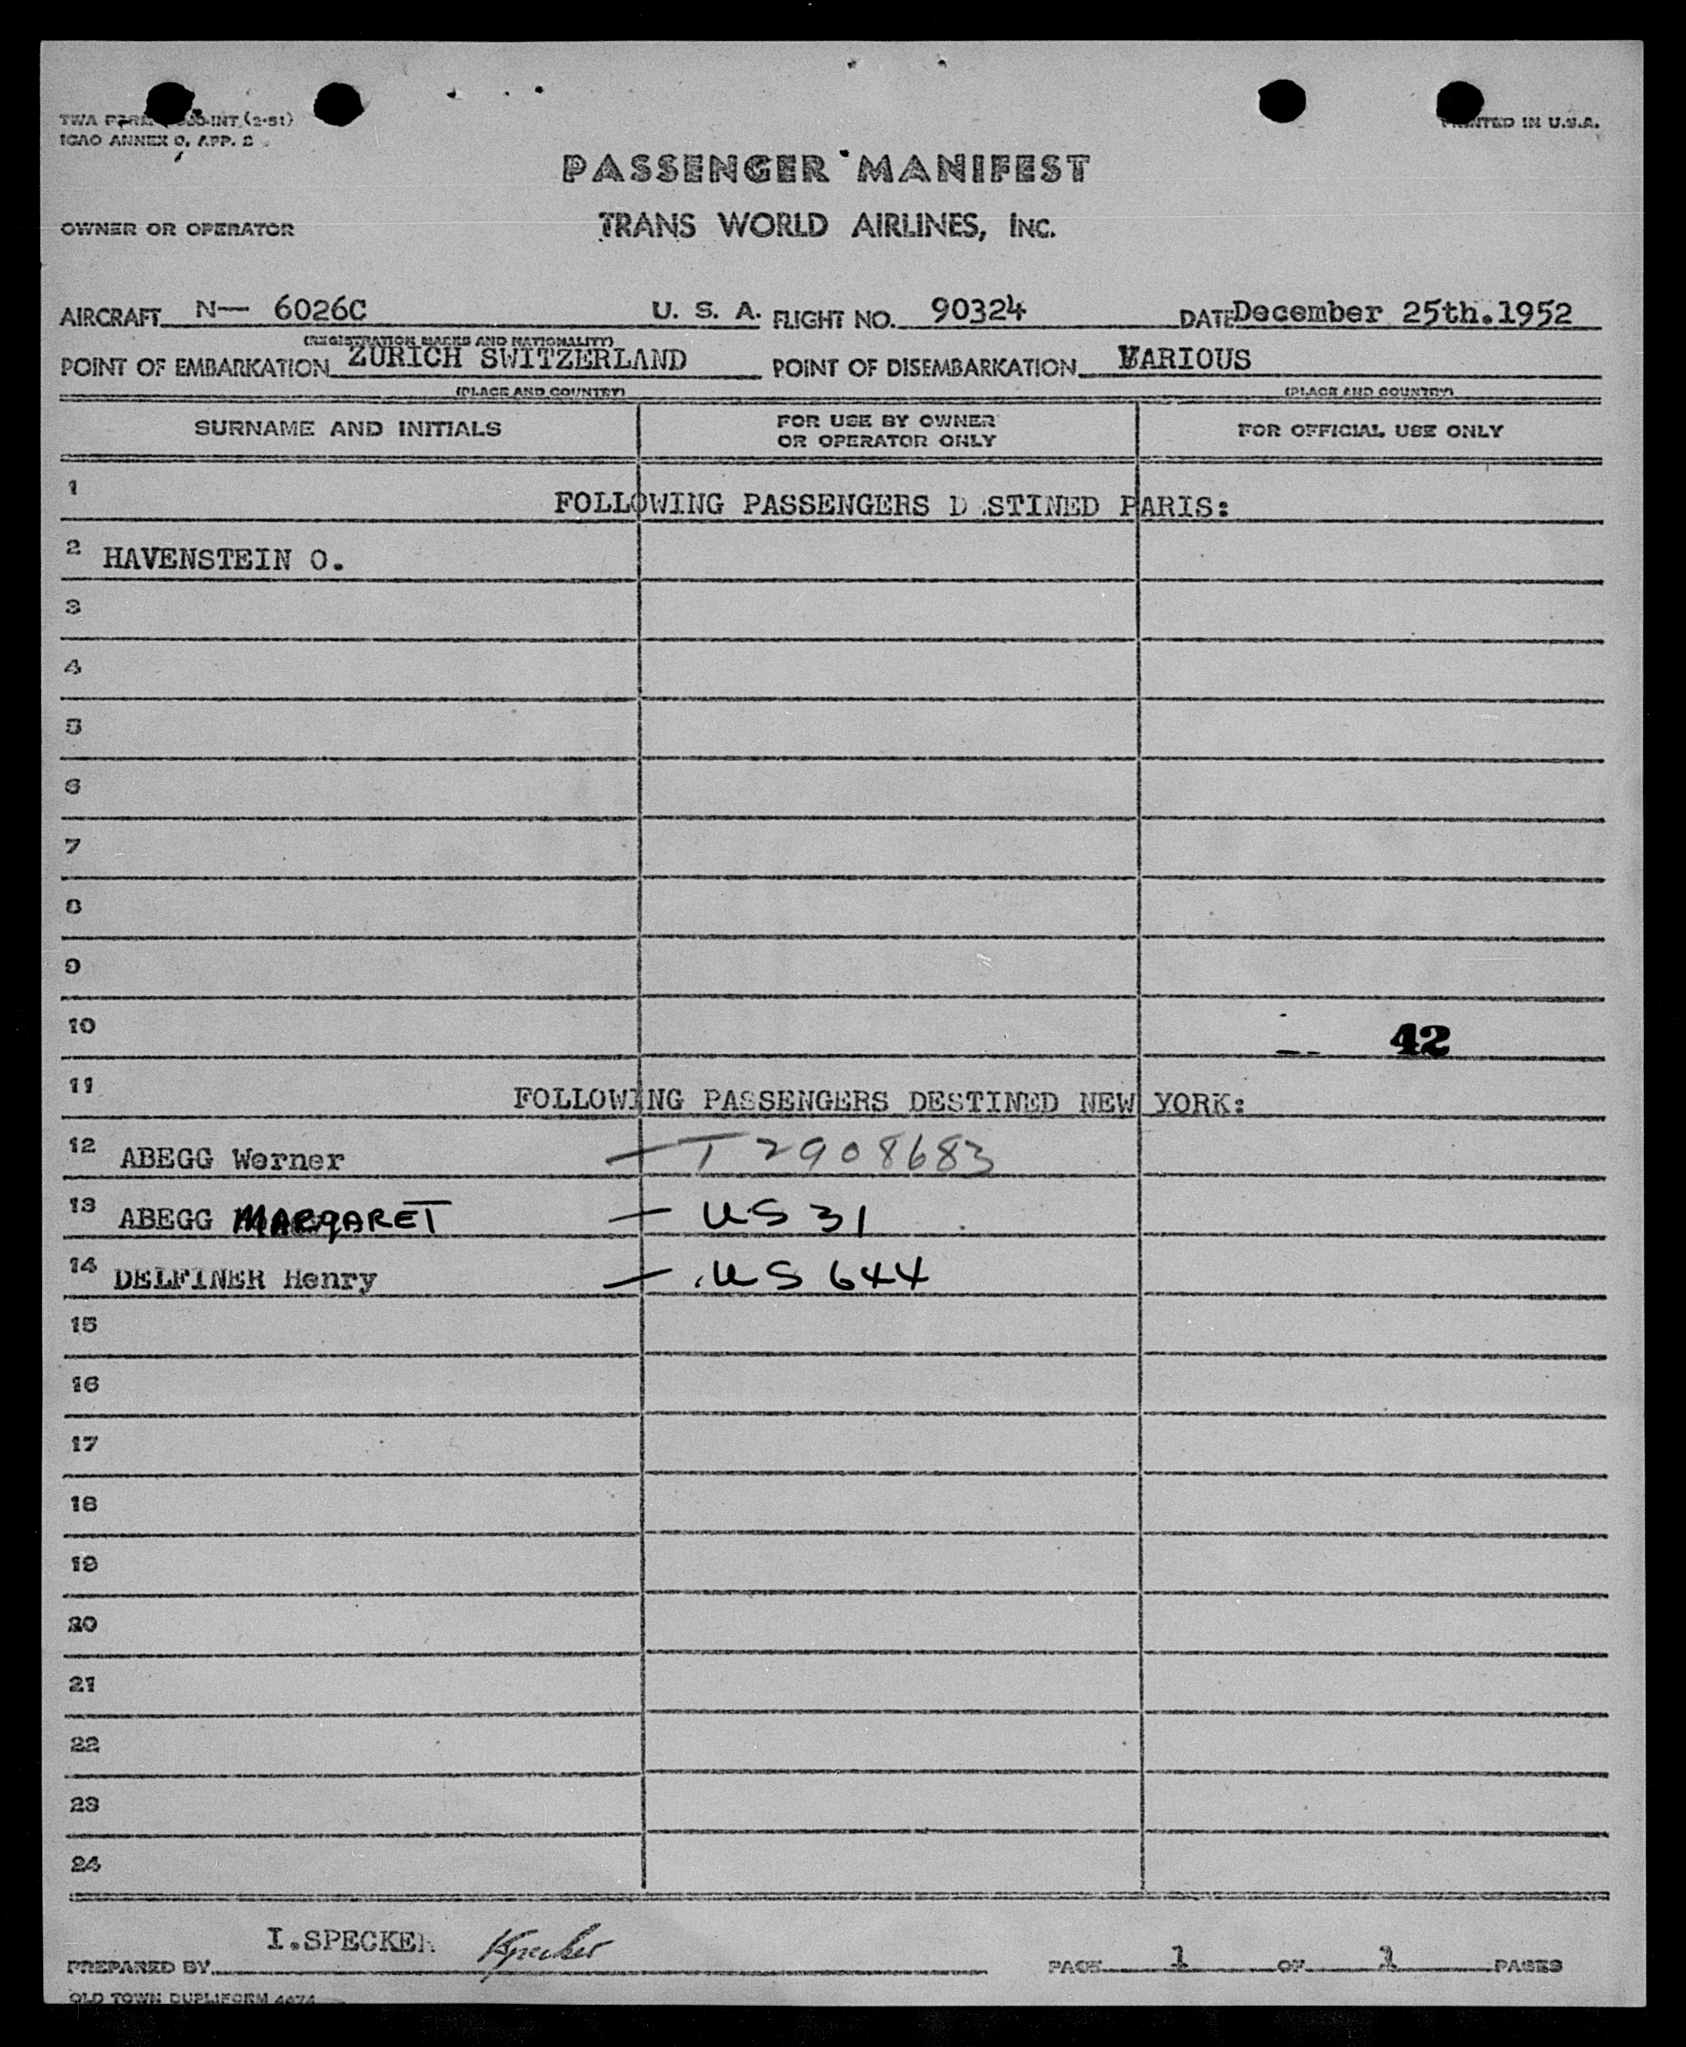 TWA FORM INT. (2-51)
ICAO ANNEX 9, APP. 2
PRINTED IN U.S.A.
PASSENGER MANIFEST
OWNER OR OPERATOR TRANS WORLD AIRLINES, INC.
AIRCRAFT N— 6026C U. S. A. FLIGHT NO. 90324 DATE December 25th.1952
(REGISTRATION MARKS AND NATIONALITY)
POINT OF EMBARKATION ZURICH SWITZERLAND POINT OF DISEMBARKATION VARIOUS
(PLACE AND COUNTRY) (PLACE AND COUNTRY)
SURNAME AND INITIALS FOR USE BY OWNER OR OPERATOR ONLY FOR OFFICIAL USE ONLY
1 FOLLOWING PASSENGERS D STINED PARIS:
2 HAVENSTEIN O.
3
4
5
6
7
8
9
10 42
11 FOLLOWING PASSENGERS DESTINED NEW YORK:
12 ABEGG Werner — T 2908683
13 ABEGG MARGARET — US 31
14 DELFINER Henry — US 644
15
16
17
18
19
20
21
22
23
24
PREPARED BY I.SPECKER Specker PAGE 1 OF 1 PAGES
OLD TOWN DUPLIFORM